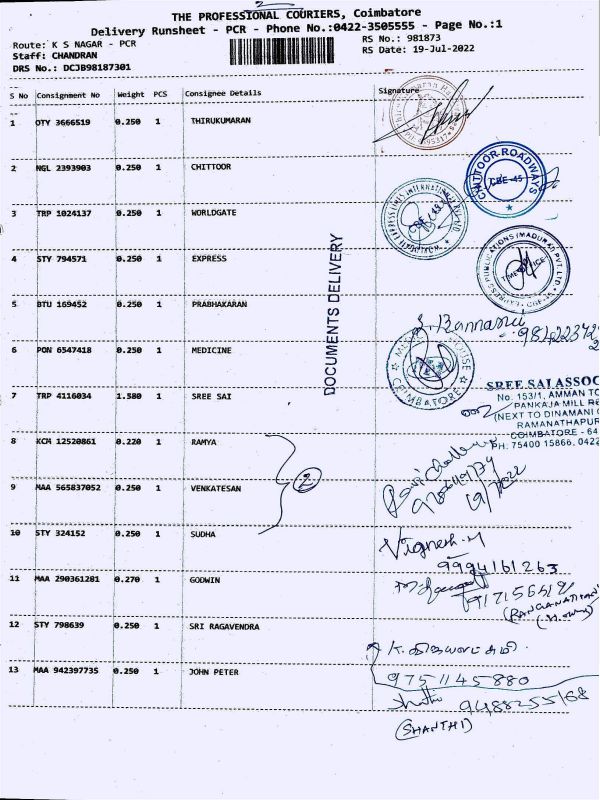 2
THE PROFESSIONAL COURIERS, Coimbatore
Delivery Runsheet - PCR - Phone No.:0422-3505555 - Page No.:1
Route: K S NAGAR - PCR
RS No.: 981873
Staff: CHANDRAN
RS Date: 19-Jul-2022
DRS No.: DCJB98187301
S No Consignment No Weight PCS Consignee Details Signature
1 OTY 3666519 0.250 1 THIRUKUMARAN
2 NGL 2393903 0.250 1 CHITTOOR
CHITTOOR-ROADWAYS
CBE-45
3 TRP 1024137 0.250 1 WORLDGATE
WORLDGATE EXPRESS LINES INTERNATIONAL PVT LTD
4 STY 794571 0.250 1 EXPRESS
EXPRESS PUBLICATIONS (MADURAI) PVT. LTD.
TIME OFFICE
DOCUMENTS DELIVERY
5 BTU 169452 0.250 1 PRABHAKARAN
6 PON 6547418 0.250 1 MEDICINE
COIMBATORE
7 TRP 4116034 1.580 1 SREE SAI
SREE SAI ASSOC
No. 153/1, AMMAN TO
PANKAJA MILL RO
(NEXT TO DINAMANI
RAMANATHAPUR
COIMBATORE - 64
PH: 75400 15866, 0422
8 KCM 12520861 0.220 1 RAMYA
9 MAA 565837052 0.250 1 VENKATESAN
2
10 STY 324152 0.250 1 SUDHA
Vignesh.M
9994161263
11 MAA 290361281 0.270 1 GODWIN
12 STY 798639 0.250 1 SRI RAGAVENDRA
13 MAA 942397735 0.250 1 JOHN PETER
9751145880
9488255168
(SHANTHI)